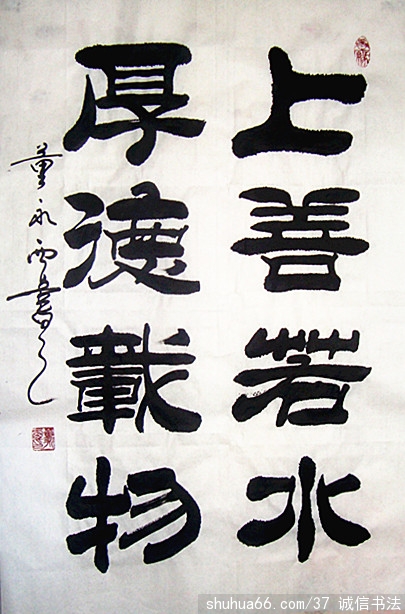 上善若水
厚德載物
董永西書
shuhua66.com/37 诚信书法